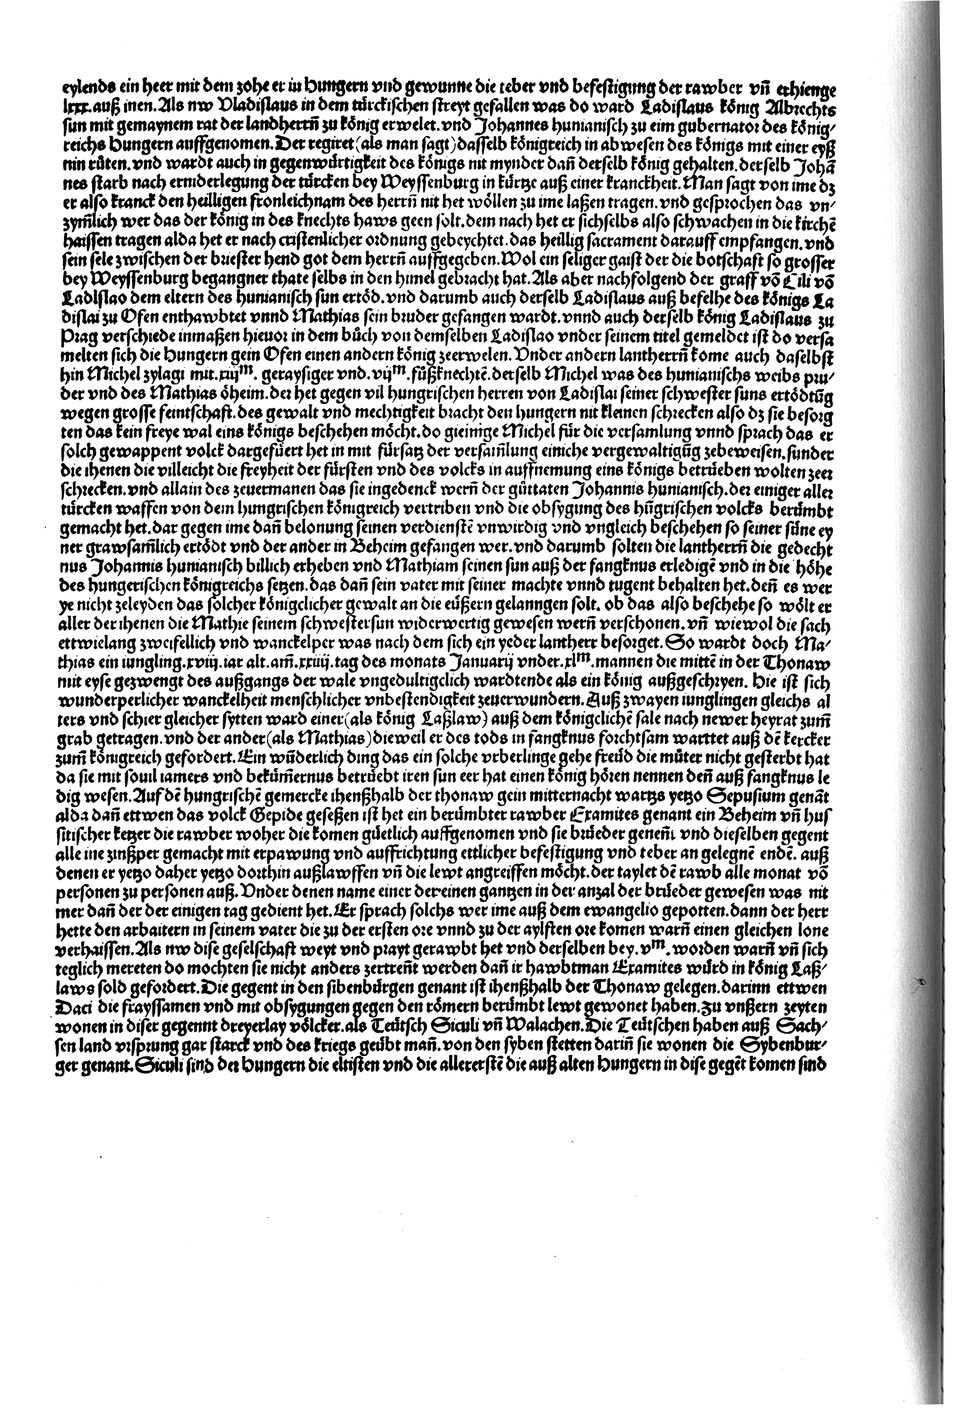 eylends ein heer mit dem zohe er in Hungern vnd gewunne die teber vnd befestigung der rawber vñ erhienge
lxxx.auß inen.Als nw Vladislaus in dem türckischen streyt gefallen was do ward Ladislaus könig Albrechts
sun mit gemaynem rat der landherrñ zu könig erwelet.vnd Johannes hunianisch zu eim gubernator des könig⸗
reichs Hungern auffgenomen.Der regiret(als man sagt)dasselb königreich in abwesen des königs mit einer eyß
nin růten.vnd wardt auch in gegenwürtigkeit des königs nit mynder dañ derselb könig gehalten.derselb Johã
nes starb nach erniderlegung der türcken bey Weyssenburg in kürtze auß einer kranckheit.Man sagt von ime dz
er also kranck den heilligen fronleichnam des herrñ nit het wöllen zu ime laßen tragen.vnd gesprochen das vn⸗
zymlich wer das der könig in des knechts haws geen solt.dem nach het er sichselbs also schwachen in die kirchẽ
haissen tragen alda het er nach cristenlicher ordnung gebeychtet.das heillig sacrament darauff empfangen.vnd
sein sele zwischen der briester hend got dem herrñ auffgegeben.Wol ein seliger gaist der die botschaft so grosser
bey Weyssenburg begangner thate selbs in den himel gebracht hat.Als aber nachfolgend der graff võ Cili võ
Ladislao dem eltern des hunianisch sun ertöd.vnd darumb auch derselb Ladislaus auß befelhe des königs La
dislai zu Ofen enthawbtet vnnd Mathias sein bruder gefangen wardt.vnnd auch derselb könig Ladislaus zu
Prag verschiede inmaßen hieuor in dem bůch von demselben Ladislao vnder seinem titel gemeldet ist do versa
melten sich die Hungern gein Ofen einen andern könig zeerwelen.Vnder andern lantherrñ kome auch daselbst
hin Michel zylagi mit.xiijᵐ. geraysiger vnd.vijᵐ.fůßknechtẽ.derselb Michel was des hunianischs weibs pru⸗
der vnd des Mathias öheim.der het gegen vil hungrischen herren von Ladislai seiner schwester suns ertödtũg
wegen grosse feintschaft.des gewalt vnd mechtigkeit bracht den hungern nit kleinen schrecken also dz sie besorg
ten das kein freye wal eins königs beschehen möcht.do gienige Michel für die versamlung vnnd sprach das er
solch gewappent volck dargefüert het in mit fürsatz der versam̃lung einiche vergewaltigũg zebeweisen.sunder
die ihenen die villeicht die freyheit der fürsten vnd des volcks in auffnemung eins königs betrüeben wolten zeer
schrecken.vnd allain des zeuermanen das sie ingedenck werñ der güttaten Johannis hunianisch.der einiger aller
türcken waffen von dem hungrischen königreich vertriben vnd die obsygung des hũgrischen volcks berümbt
gemacht het.dar gegen ime dañ belonung seinen verdienstẽ vnwirdig vnd vngleich beschehen so seiner süne ey
ner grawsam̃lich ertödt vnd der ander in Beheim gefangen wer.vnd darumb solten die lantherrñ die gedecht
nus Johannis hunianisch billich erheben vnd Mathiam seinen sun auß der fangknus erledigẽ vnd in die höhe
des hungerischen königreichs setzen.das dañ sein vater mit seiner machte vnnd tugent behalten het.deñ es wer
ye nicht zeleyden das solcher königclicher gewalt an die eüßern gelanngen solt. ob das also beschehe so wölt er
aller der ihenen die Mathie seinem schwestersun widerwertig gewesen werñ verschonen.vñ wiewol die sach
ettwielang zweifellich vnd wanckelper was nach dem sich ein yeder lantherr besorget.So wardt doch Ma⸗
thias ein iungling.xviij.iar alt.am̃.xxiiij.tag des monats Januarij vnder.xlᵐ.mannen die mittẽ in der Thonaw
mit eyse gezwengt des außgangs der wale vngedultigclich wardtende als ein könig außgeschryen. Hie ist sich
wunderperlicher wanckelheit menschlicher vnbestendigkeit zeuerwundern.Auß zwayen iunglingen gleichs al
ters vnd schier gleicher sytten ward einer(als könig Laßlaw) auß dem königclichẽ sale nach newer heyrat zum̃
grab getragen.vnd der ander(als Mathias)dieweil er des tods in fangknus forchtsam warttet auß dẽ kercker
zum̃ königreich gefordert.Ein wũderlich ding das ein solche vrberlinge gehe freüd die můter nicht gesterbt hat
da sie mit souil iamers vnd beküm̃ernus betrüebt iren sun eer hat einen könig hören nennen deñ auß fangknus le
dig wesen.Auf dẽ hungrischẽ gemercke ihenßhalb der thonaw gein mitternacht wartzs yetzo Sepusium genãt
alda dañ ettwen das volck Gepide geseßen ist het ein berümbter rawber Examites genant ein Beheim vñ hus
sitischer ketzer die rawber woher die komen güetlich auffgenomen vnd sie brüeder genent. vnd dieselben gegent
alle ine zinßper gemacht mit erpawung vnd auffrichtung ettlicher befestigung vnd teber an gelegnẽ endẽ. auß
denen er yetzo daher yetzo dorthin außlawffen vñ die lewt angreiffen möcht.der taylet dẽ rawb alle monat võ
personen zu personen auß.Vnder denen name einer der einen gantzen in der anzal der brüeder gewesen was nit
mer dañ der der einigen tag gedient het.Er sprach solchs wer ime auß dem ewangelio gepotten.dann der herr
hette den arbaitern in seinem vater die zu der ersten ore vnnd zu der aylften ore komen warñ einen gleichen lone
verhaissen.Als nw dise geselschaft weyt vnd prayt gerawbt het vnd derselben bey.vᵐ.worden warñ vñ sich
teglich mereten do mochten sie nicht anders zertreñt werden dañ ir hawbtman Examites würd in könig Laß⸗
laws sold gefordert.Die gegent in den sibenbürgen genant ist ihenßhalb der Thonaw gelegen.darinn ettwen
Daci die frayssamen vnd mit obsygungen gegen den römern berümbt lewt gewonet haben.Zu vnßern zeyten
wonen in diser gegennt dreyerlay völcker.als Teütsch Siculi vñ Walachen.Die Teütschen haben auß Sach⸗
sen land vrsprung gar starck vnd des kriegs geübt mañ.von den syben stetten dariñ sie wonen die Sybenbur⸗
ger genant.Siculi sind der Hungern die eltisten vnd die allererstẽ die auß alten Hungern in dise gegẽt komen sind